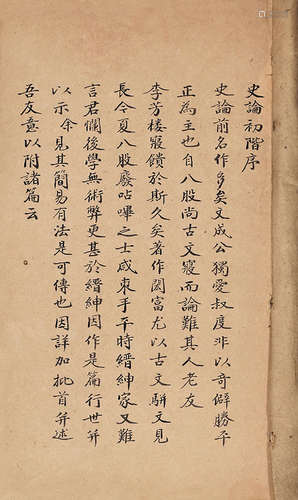 史論初階序
史論前名作多矣文成公獨愛叔度非以奇僻勝平
正為主也自八股尚古文寢而論難其人老友
李芳樓寢饋於斯久矣著作閎富尤以古文駢文見
長今夏八股廢呫嗶之士咸束手平時縉紳家又難
言君憫後學無術弊更甚於縉紳因作是篇行世并
以示余見其簡易有法是可傳也因詳加批首并述
吾友意以附諸篇云